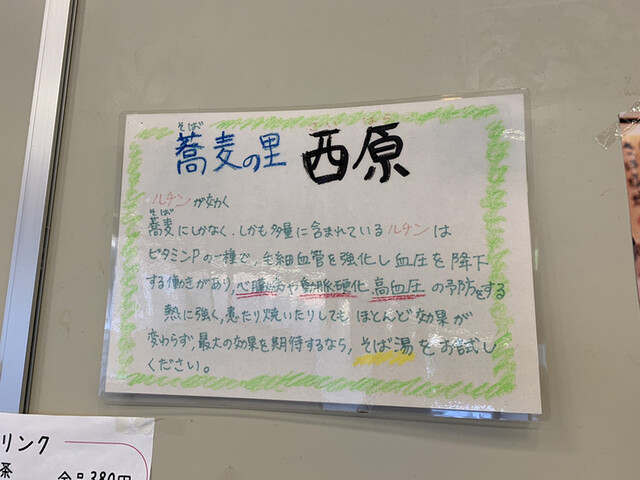 そば
蕎麦の里 西原
ルチンが効く
そば
蕎麦にしかなく、しかも多量に含まれているルチンは
ビタミンPの一種で、毛細血管を強化し血圧を降下
する働きがあり、心臓病や動脈硬化、高血圧の予防をする
熱に強く、煮たり焼いたりしてもほとんど効果が
変わらず、最大の効果を期待するなら、そば湯をお試し
ください。
リンク
茶
380円